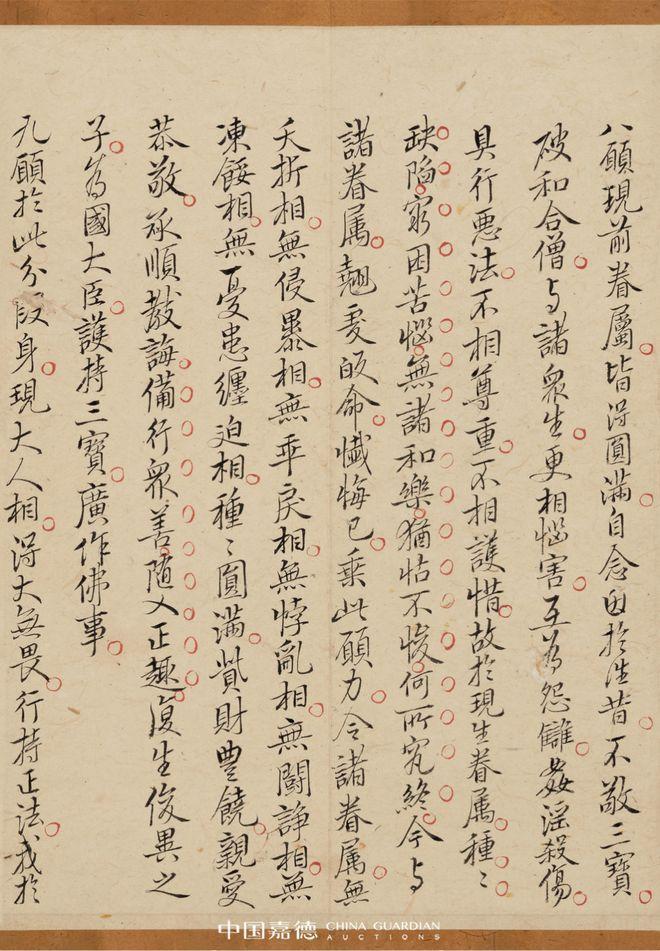 八願現前眷屬皆得圓滿自念因於往昔不敬三寶
破和合僧与諸衆生更相惱害互為怨讎姦淫殺傷
具行悪法不相尊重不相護惜故於現生眷属種〻
缺陷窮困苦惱無諸和樂猶怙不悛何所究終今与
諸眷属翹憂皈命懺悔已乗此願力令諸眷属無
夭折相無侵暴相無乖戾相無悖亂相無鬪諍相無
凍餒相無憂患纏迫相種〻圓滿貲財豊饒親愛
恭敬承順教誨備行衆善随入正趣復生俊異之
子為國大臣護持三寶廣作佛事
九願於此分段身現大人相得大無畏行持正法我於
中国嘉德 CHINA GUARDIAN
AUCTIONS